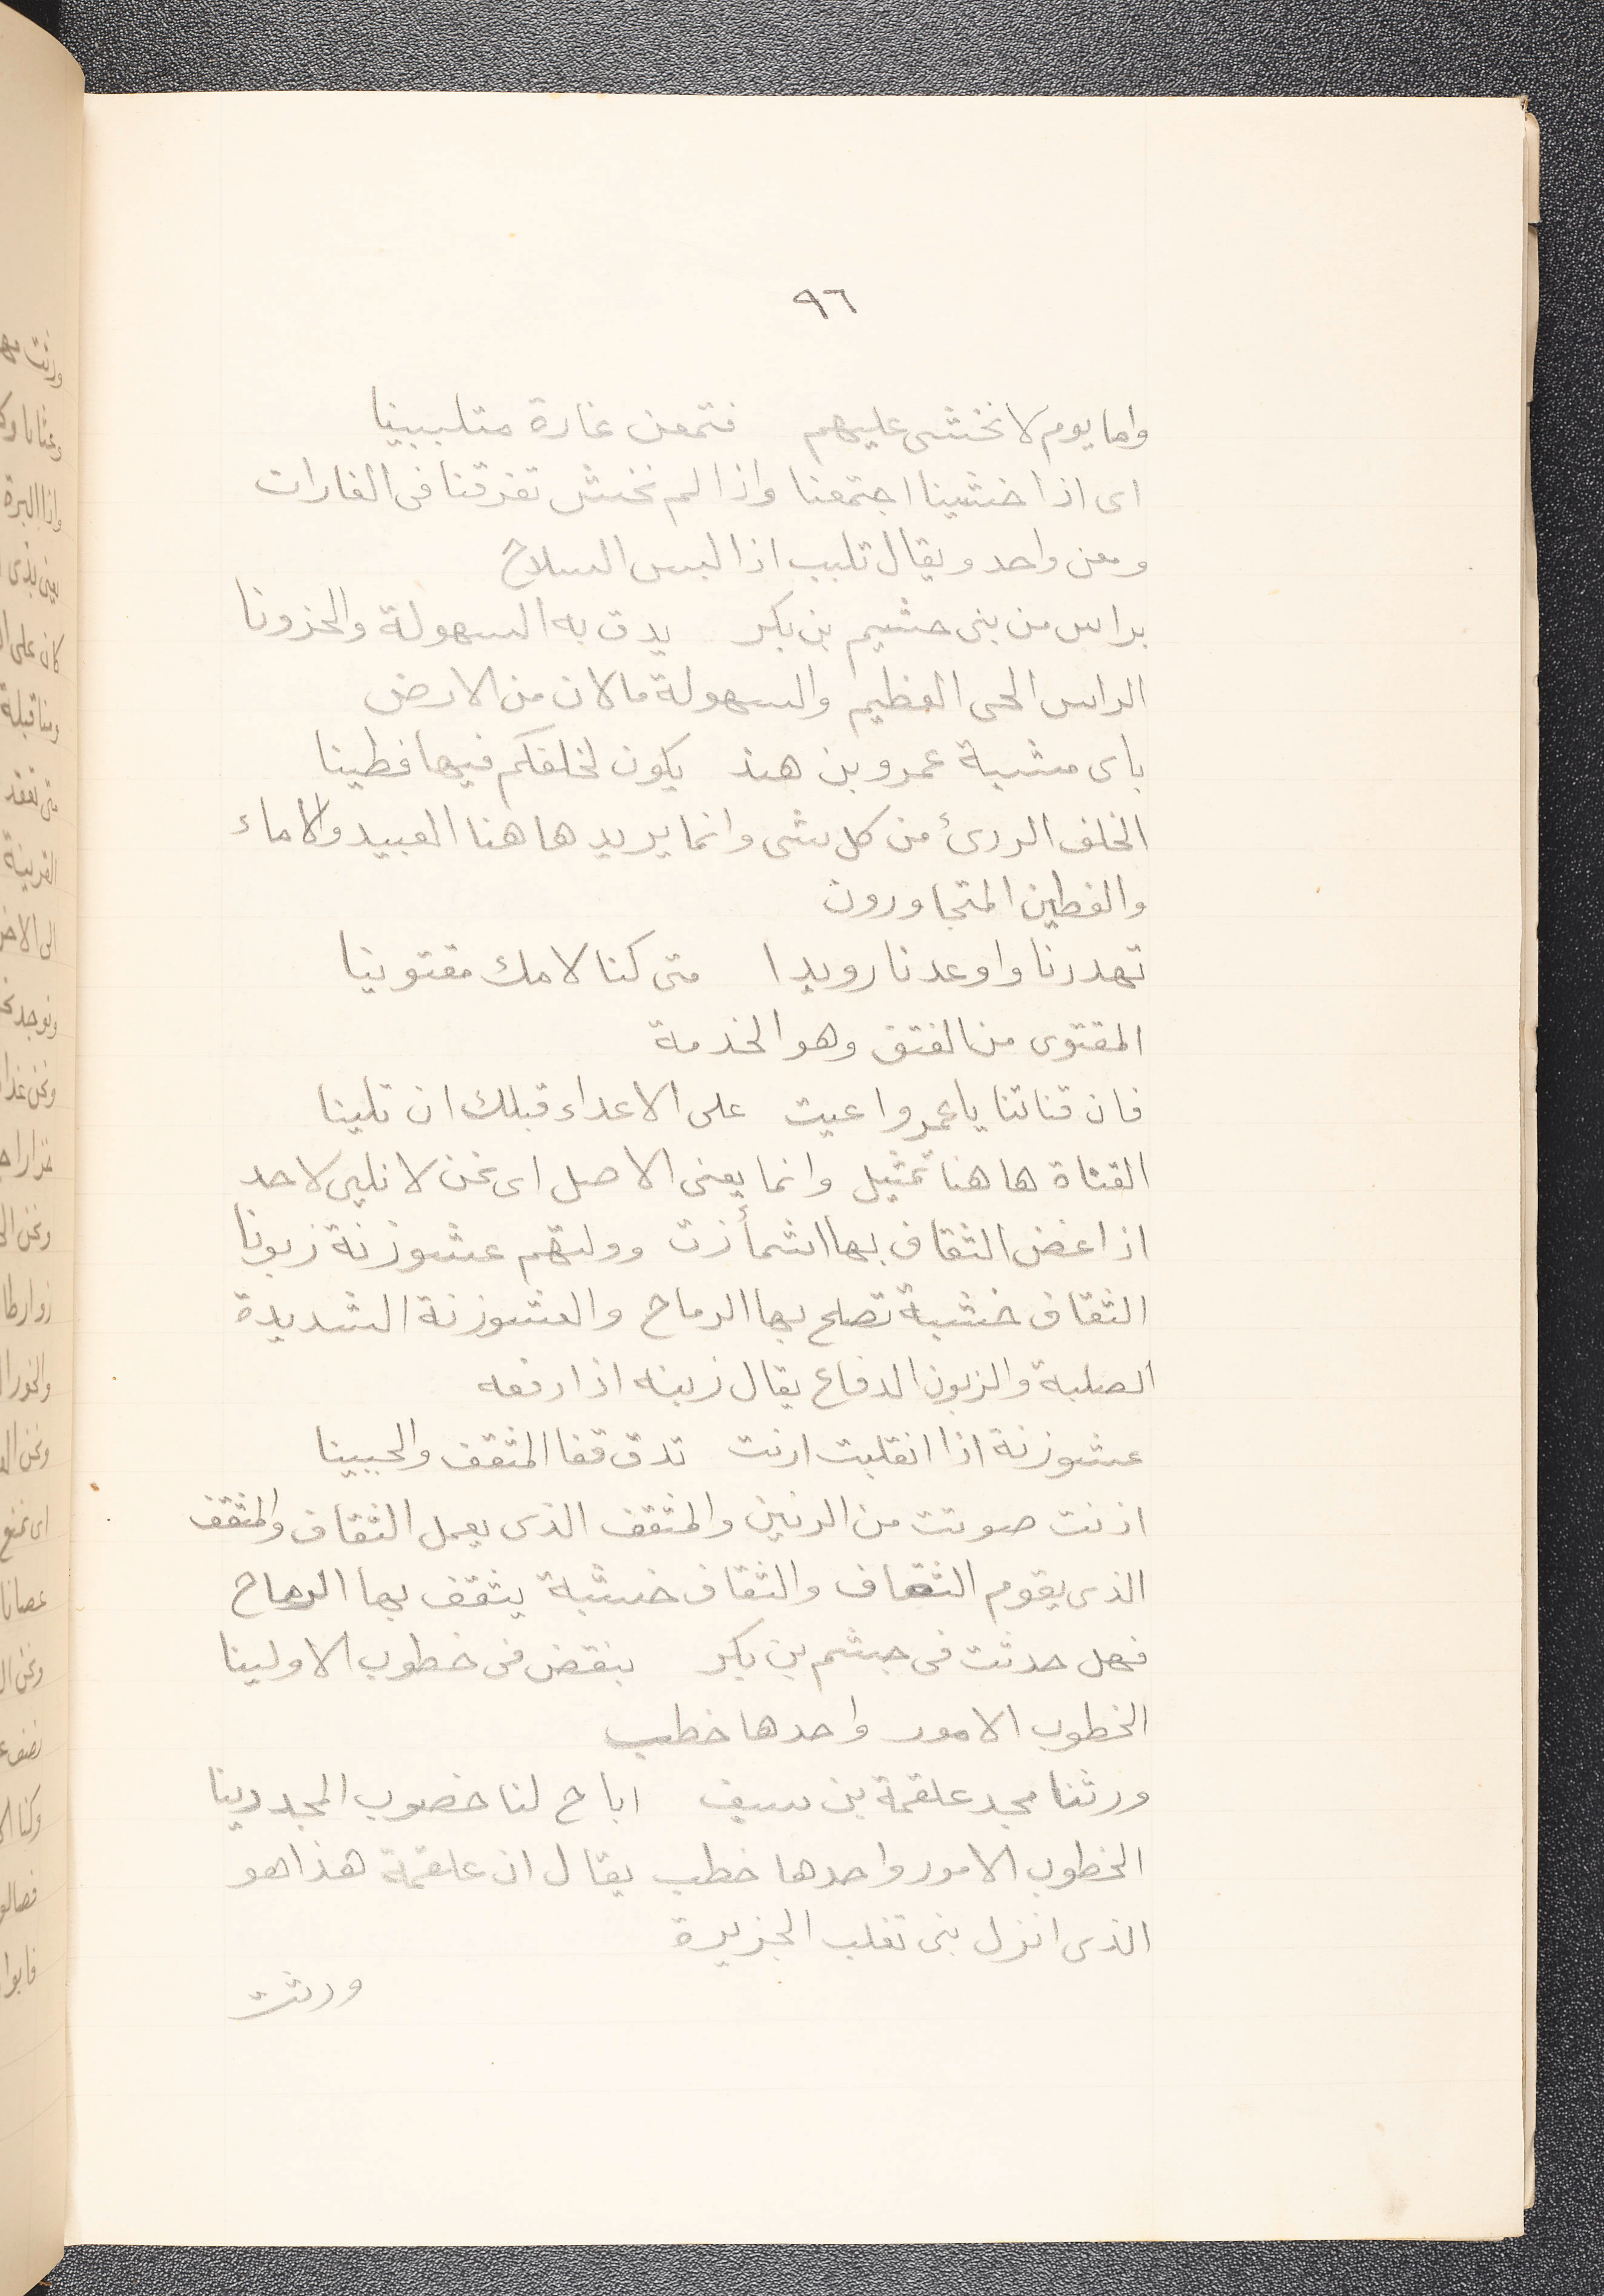 ٩٦
واما يوم لا نخشى عليهم فتمعن غارة متلببينا
اى اذا خشينا اجتمعنا واذا لم نخش تفرقنا فى الغارات
ومعن واحد ويقال تلبب اذا لبس السلاح
براس من بنى جشيم بن بكر يدق به السهولة والحزونا
الراس الحى العظيم والسهولة مالان من الارض
باى مشية عمرو بن هند يكون لخلفكم فيها قطينا
الخلف الردئ من كل شى وانما يريد هاهنا العبيد والاماء
والقطين المتجاورون
تهددنا واوعدنا رويدا متى كنا لامك مقتوينا
المقتوى من الفتق وهو الخدمة
فان قناتنا يا عمرو اعيت على الاعداء قبلك ان تلينا
القناة هاهنا تمثيل وانما يعنى الاصل اى نحن لا نلين لاحد
اذا عض الثقاف بها اشمأزت وولتهم عشوزنة زبونا
الثقاف خشبة تصلح بها الرماح والعشوزنة الشديدة
الصلبة والزبون الدفاع يقال زبنه اذا دفعه
عشوزنة اذا انقلبت ارنت تدق قفا المثقف والجبينا
ارنت صوتت من الرنين والمثقف الذى يعمل الثقاف والمثقف
الذى يقوم الثقاف والثقاف خشبة يثقف بها الرماح
فهل حدثت فى جشم بن بكر بنقض فى خطوب الاولينا
الخطوب الامور واحدها خطب
ورثنا مجد علقمة بن سيف اباح لنا حصون المجد دينا
الخطوب الامور واحدها خطب يقال ان علقمة هذا هو
الذى انزل بنى تغلب الجزيرة
ورثت